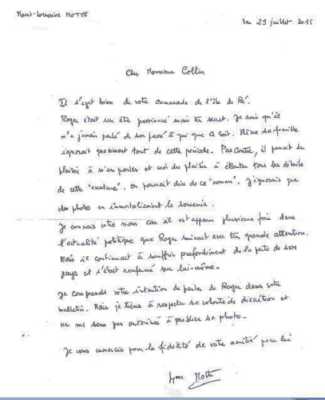 Marie-Lorraine MOTTE
Le 29 juillet 2015
Cher Monsieur Collin
Il s'agit bien de votre camarade de l'Ile de Ré.
Roger était un être passionné mais très secret. Je sais qu'il
n'a jamais parlé de son passé à qui que ce soit. Même sa famille
ignorait quasiment tout de cette période. Par contre, il prenait du
plaisir à m'en parler et moi du plaisir à écouter tous les détails
de cette "aventure". On pourrait dire de ce "roman". J'ignorais que
des photos en immortalisaient le souvenir.
Je connais votre nom car il est apparu plusieurs fois dans
l'actualité politique que Roger suivait avec très grande attention.
Mais il continuait à souffrir profondément de la perte de son
pays et s'était renfermé sur lui-même.
Je comprends votre intention de parler de Roger dans votre
bulletin. Mais je tiens à respecter sa volonté de discrétion et
ne me sens pas autorisée à publier sa photo.
Je vous remercie pour la fidélité de votre amitié pour lui
Motte